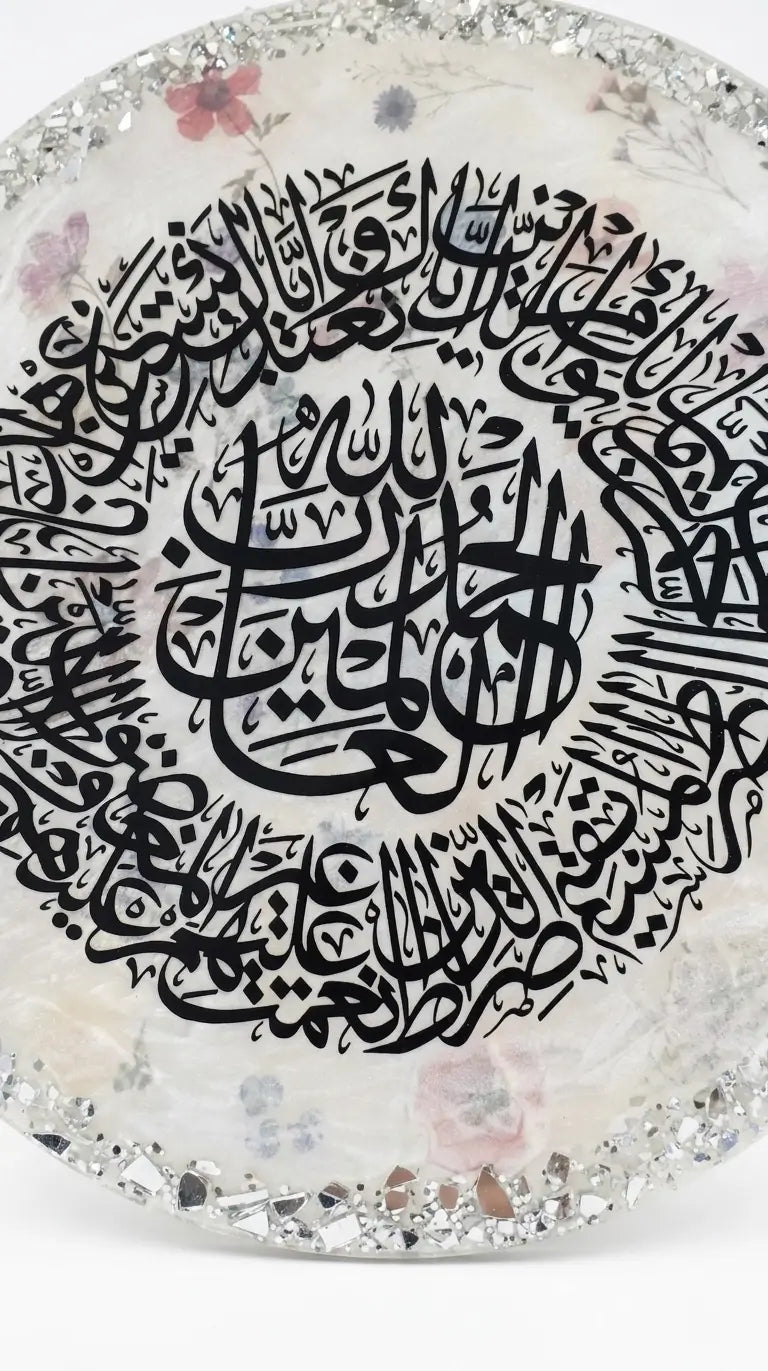 الحمد لله رب العالمين
الرحمن الرحيم
مالك يوم الدين
إياك نعبد وإياك نستعين
اهدنا
الصراط المستقيم
صراط الذين أنعمت عليهم غير المغضوب عليهم ولا الضالين